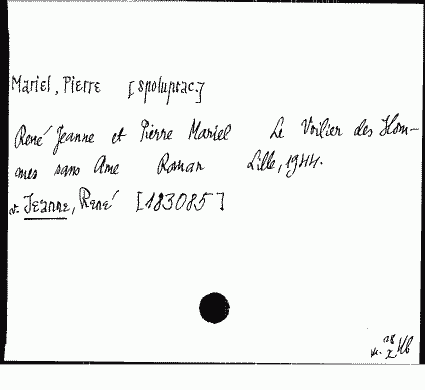 Mariel, Pierre [spoluprac.]
René Jeanne et Pierre Mariel Le Voilier des Hom-
mes sans Ame Roman Lille, 1944.
v. Jeanne, René [183085]